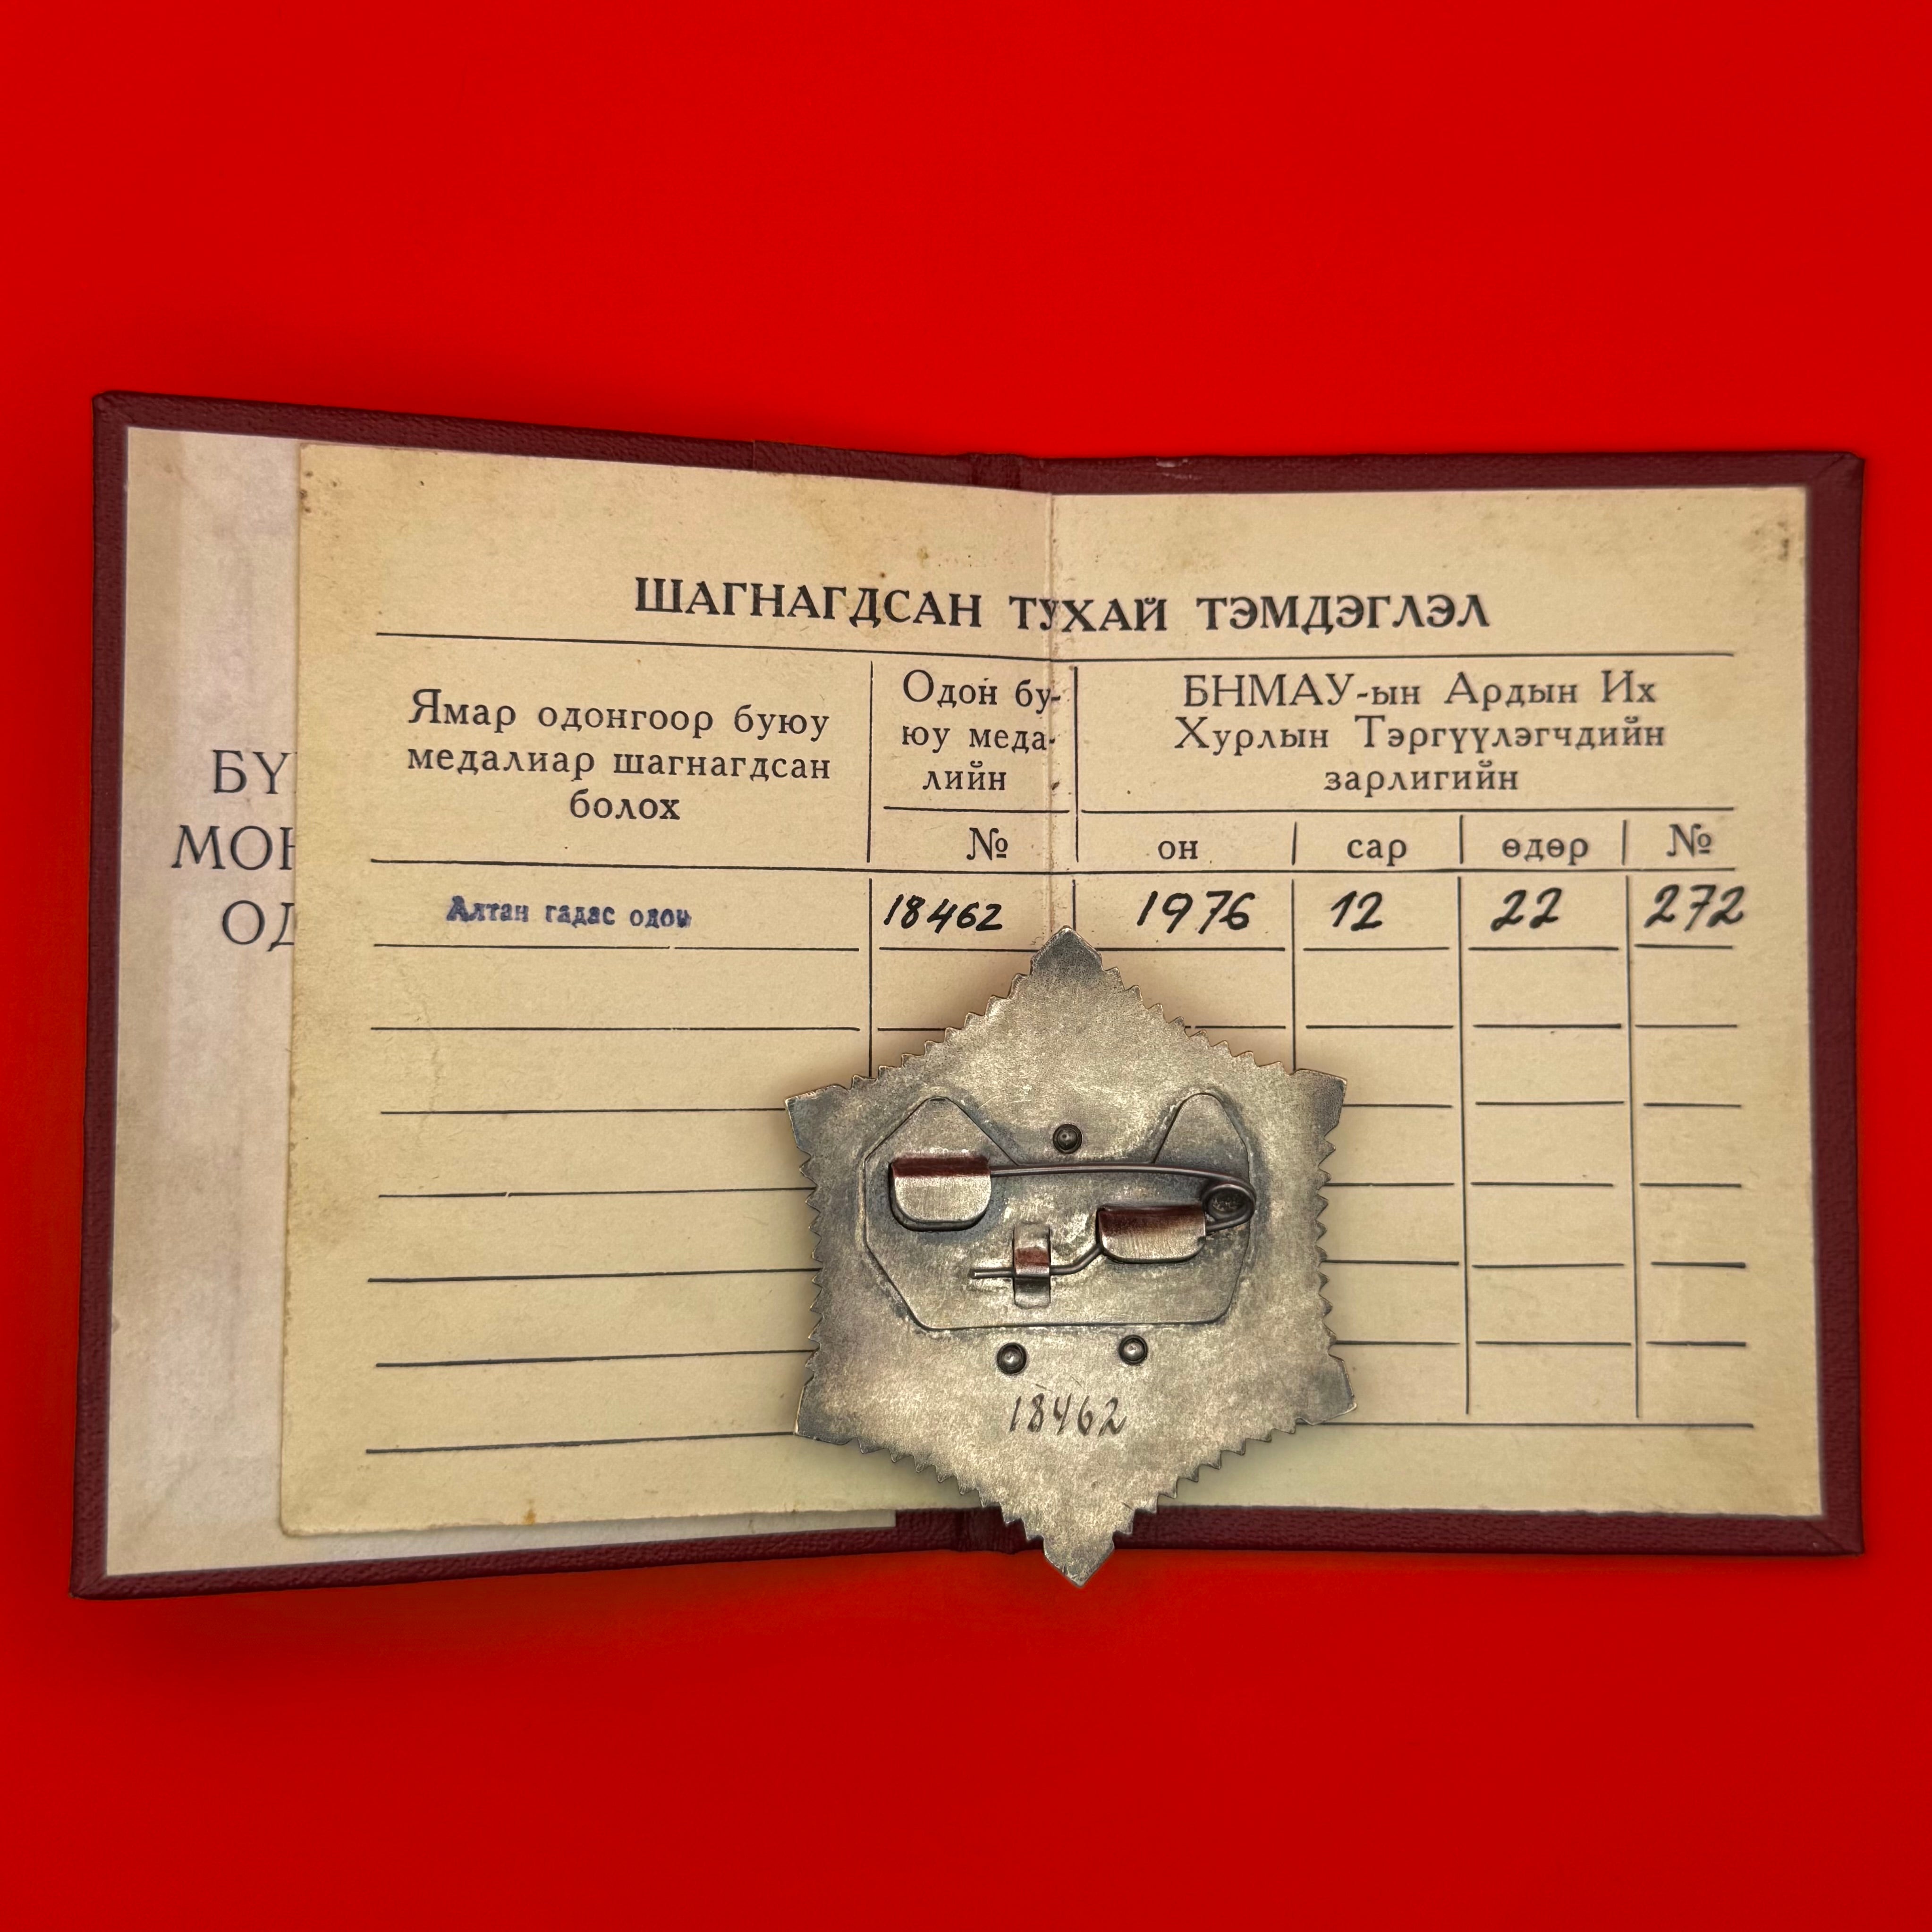 БҮ
МОН
ОД
ШАГНАГДСАН ТУХАЙ ТЭМДЭГЛЭЛ
Ямар одонгоор буюу
медалиар шагнагдсан
болох
Одон бу-
юу меда-
лийн
№
БНМАУ-ын Ардын Их
Хурлын Тэргүүлэгчдийн
зарлигийн
он сар өдөр №
Алтан гадас одон 18462 1976 12 22 272
18462